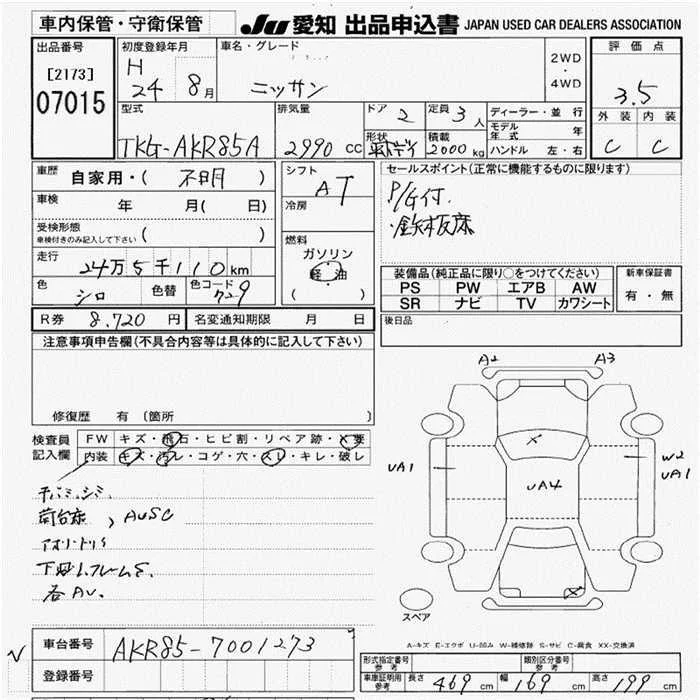 車内保管・守衛保管
JU 愛知 出品申込書 JAPAN USED CAR DEALERS ASSOCIATION
出品番号 初度登録年月 車名・グレード 2WD・4WD 評価点
[2173] 07015
H 24 8月 ニッサン
3.5
型式 排気量 ドア 2 定員 3人 ディーラー・並行
外装 内装
TKG-AKR85A 2990 CC 形状 平ボディ 積載 2000 kg モデル年式 年
ハンドル 左・右
C C
車歴 自家用・( 不明 )
シフト AT
セールスポイント(正常に機能するものに限ります)
車検 年 月( 日)
冷房
P/G付.
鉄板床
受検形態
車検付きのみ記入して下さい ( )
燃料
ガソリン
軽・油
( )
走行 24万5千110km
色 シロ 色替 色コード 729
装備品(純正品に限り○をつけてください) 新車保証書
PS PW エアB AW 有・無
SR ナビ TV カワシート
R券 8,720 円 名変通知期限 月 日
後日品
注意事項申告欄(不具合内容等は具体的に記入して下さい)
修復歴 有 〔箇所 〕
検査員記入欄
FW キズ・飛石・ヒビ割・リペア跡・X要
内装 キズ・汚レ・コゲ・穴・スレ・キレ・破レ
A2 A3
UA1
W2
UA1
UA4
X
X
荷台床、AUSC
アオリ・トリイ
下廻り、フレームS.
各AU.
スペア
A-キズ E-エクボ U-凹み W-補修跡 S-サビ C-腐食 XX-交換済
車台番号 AKR85-7001273
登録番号
形式指定番号 参考 類別区分番号 参考
車庫証明用 参考 長さ 469 cm 幅 169 cm 高さ 199 cm